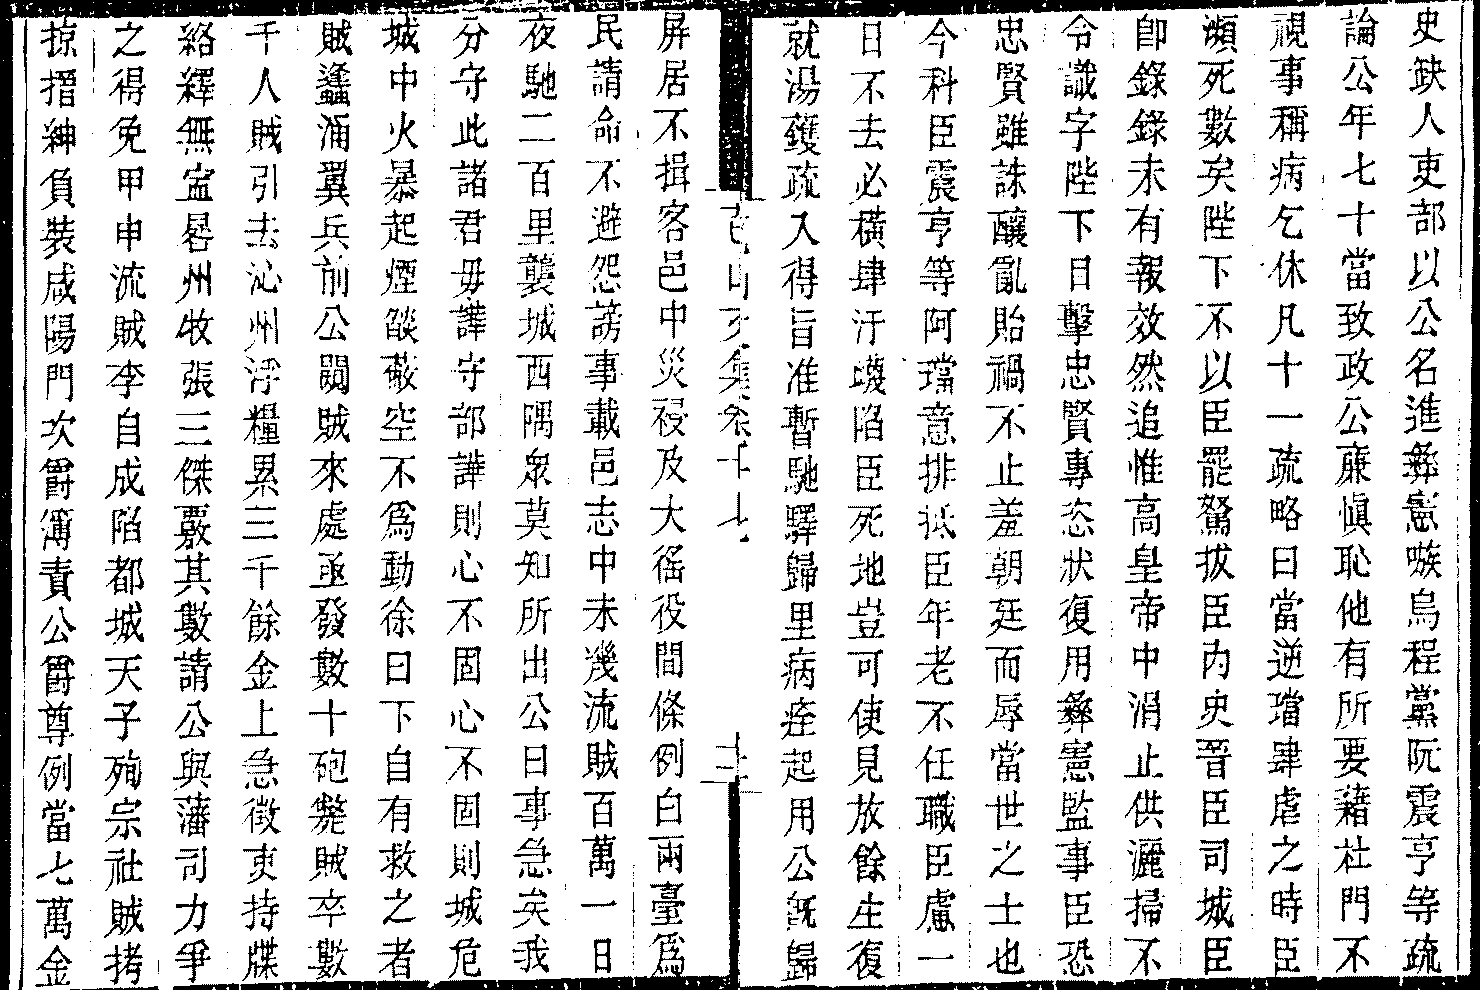 史缺人吏部以公名進彝憲嗾烏程黨阮震亨等疏
論公年七十當致政公亷愼恥他有所要藉杜門不
視事稱病乞休凡十一疏略曰當逆璫肆虐之時臣
瀕死數矣陛下不以臣罷駑拔臣内史晉臣司城臣
卽錄錄未有報效然追惟高皇帝中涓止供灑掃不
令識字陛下目擊忠賢專恣狀復用彝憲監事臣恐
忠賢雖誅釀亂貽禍不止羞朝廷而辱當世之士也
今科臣震亨等阿璫意排抵臣年老不任職臣慮一
日不去必橫肆汙衊陷臣死地豈可使見放餘生復
就湯鑊疏入得旨准暫馳驛歸里病痊起用公旣歸
文集卷十七
屏居不揖客邑中災祲及大徭役間條例白兩臺爲
民請命不避怨謗事載邑志中未幾流賊百萬一日
夜馳二百里襲城西隅衆莫知所出公曰事急矣我
分守此諸君毋譁守部譁則心不固心不固則城危
城中火暴起煙燄蔽空不爲動徐曰下自有救之者
賊蠭涌翼兵前公闕賊來處亟發數十砲斃賊卒數
千人賊引去沁州浮糧累三千餘金上急徵吏持牒
絡繹無寍晷州牧張三傑覈其數請公與藩司力爭
之得免甲申流賊李自成陷都城天子殉宗社賊拷
掠搢紳負裝咸陽門次爵簿責公爵尊例當七萬金